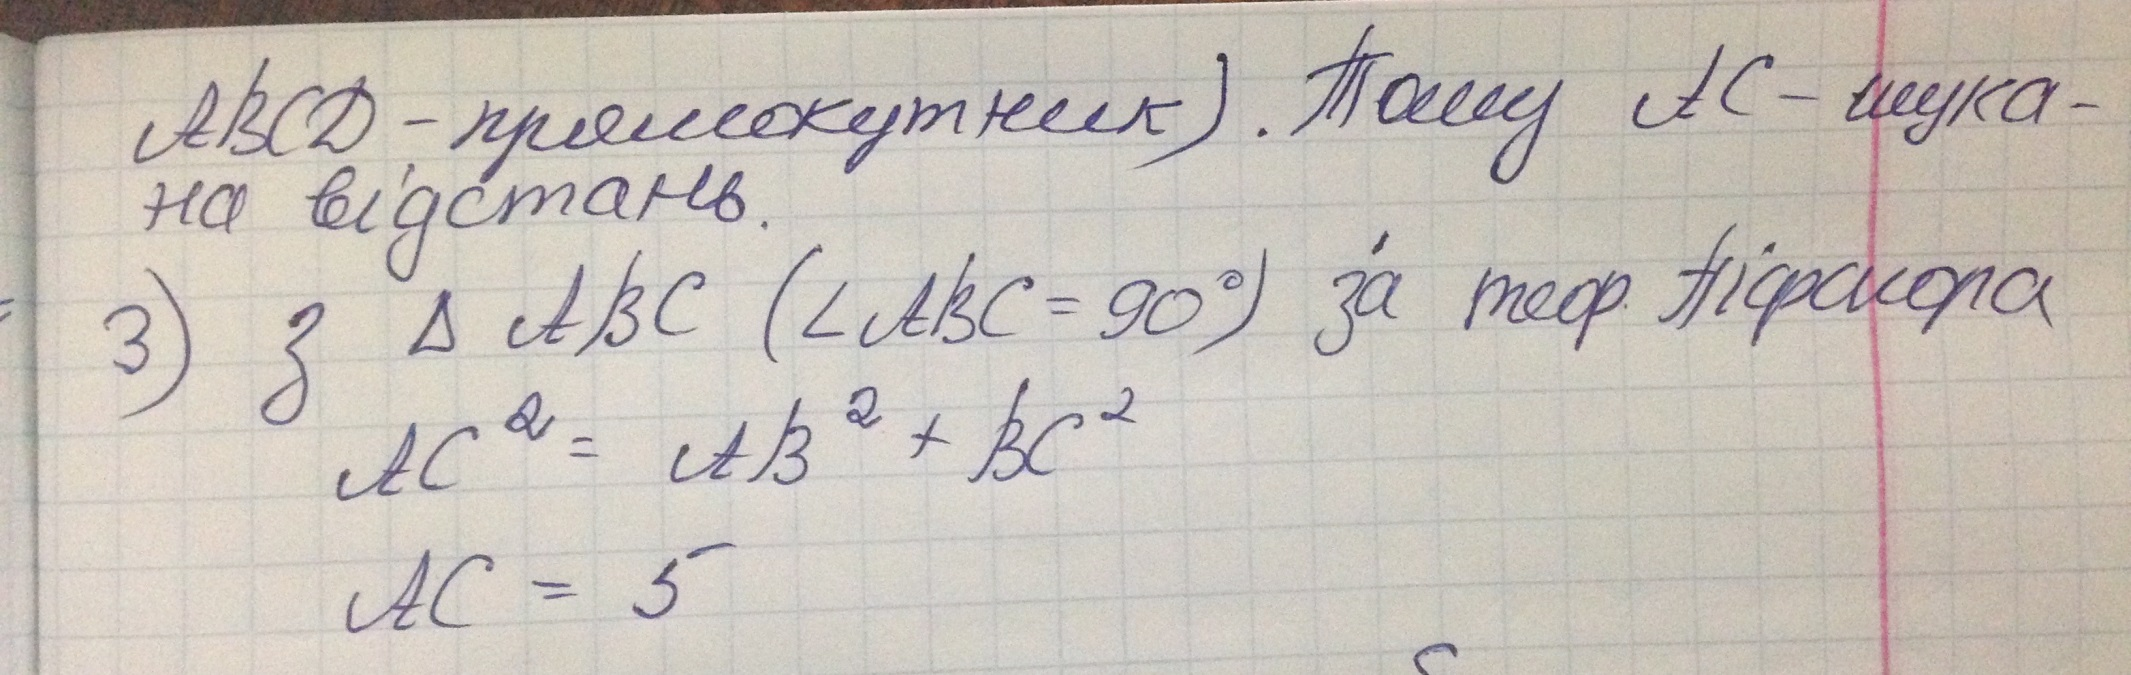 ABCD - прямокутник). Тому AC - шука-
на відстань.
3) З Δ ABC (∠ABC = 90°) за теор. Піфагора
AC² = AB² + BC²
AC = 5